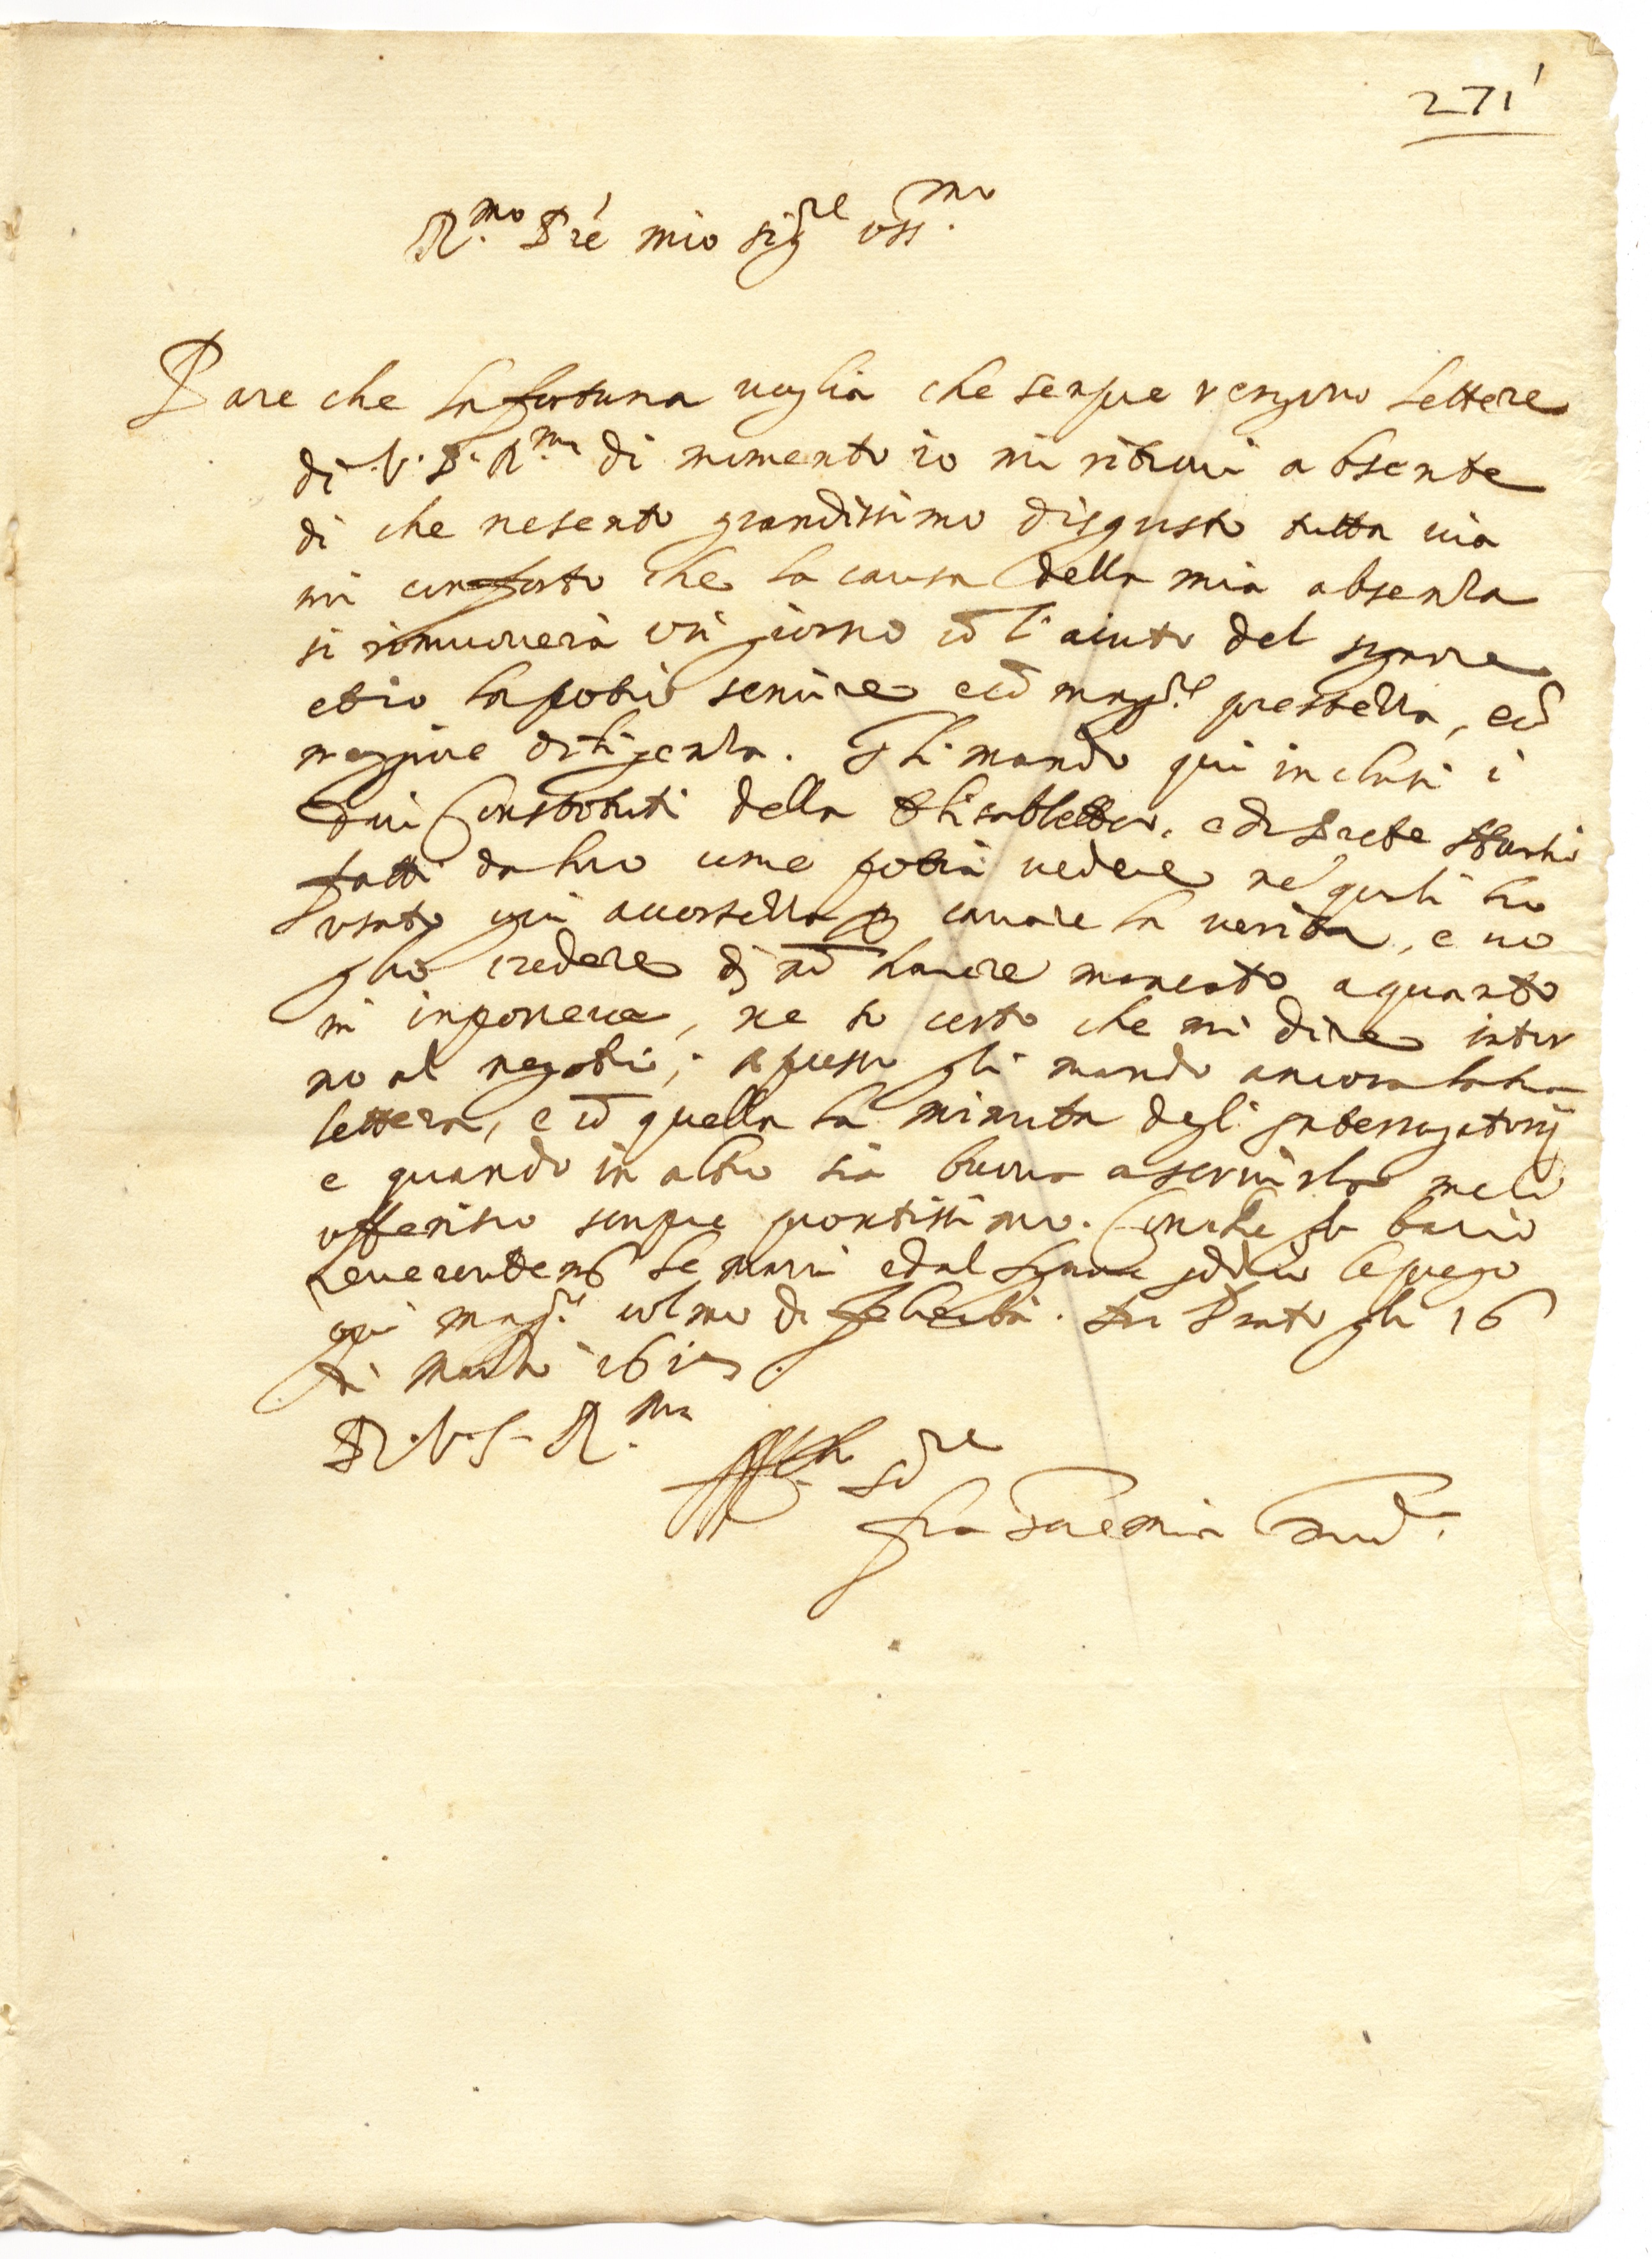 271
R.mo P.re mio sig.re oss.mo
Pare che la fortuna voglia che senpre vengono lettere
di V. P. R.ma di momento io mi ritrovi absente
di che ne sento grandissimo disgusto tutta via
mi conforto che la causa della mia absenza
si rimuoverà un giorno cō l'aiuto del signore
et io la potrò servire e cō mag.re prestezza, e cō
maggiore diligenza. Gli mando qui inclusi i
dui Constituti della Elisabetta, e di Prete
fatti da luo come potrà vedere ne quali ho
usato ogni accortezza per cavare la verità, e vo
glio credere di nō havere mancato a quanto
m'inponeva, ne so certo che mi dire intor
no al negotio; apresso gli mando ancora la sua
lettera, e cō quella la minuta degl' interrogatorij
e quando in altro sia buono a servirla melo
offerisco senpre prontissimo. Con che fo bacio
reverentem.te le mani ed al Signore Iddio le prego
ogni mag.re colmo di felicità. Di Prato gli 16
di Marzo
D. V. P. R.ma
Aff.mo se.re
fra